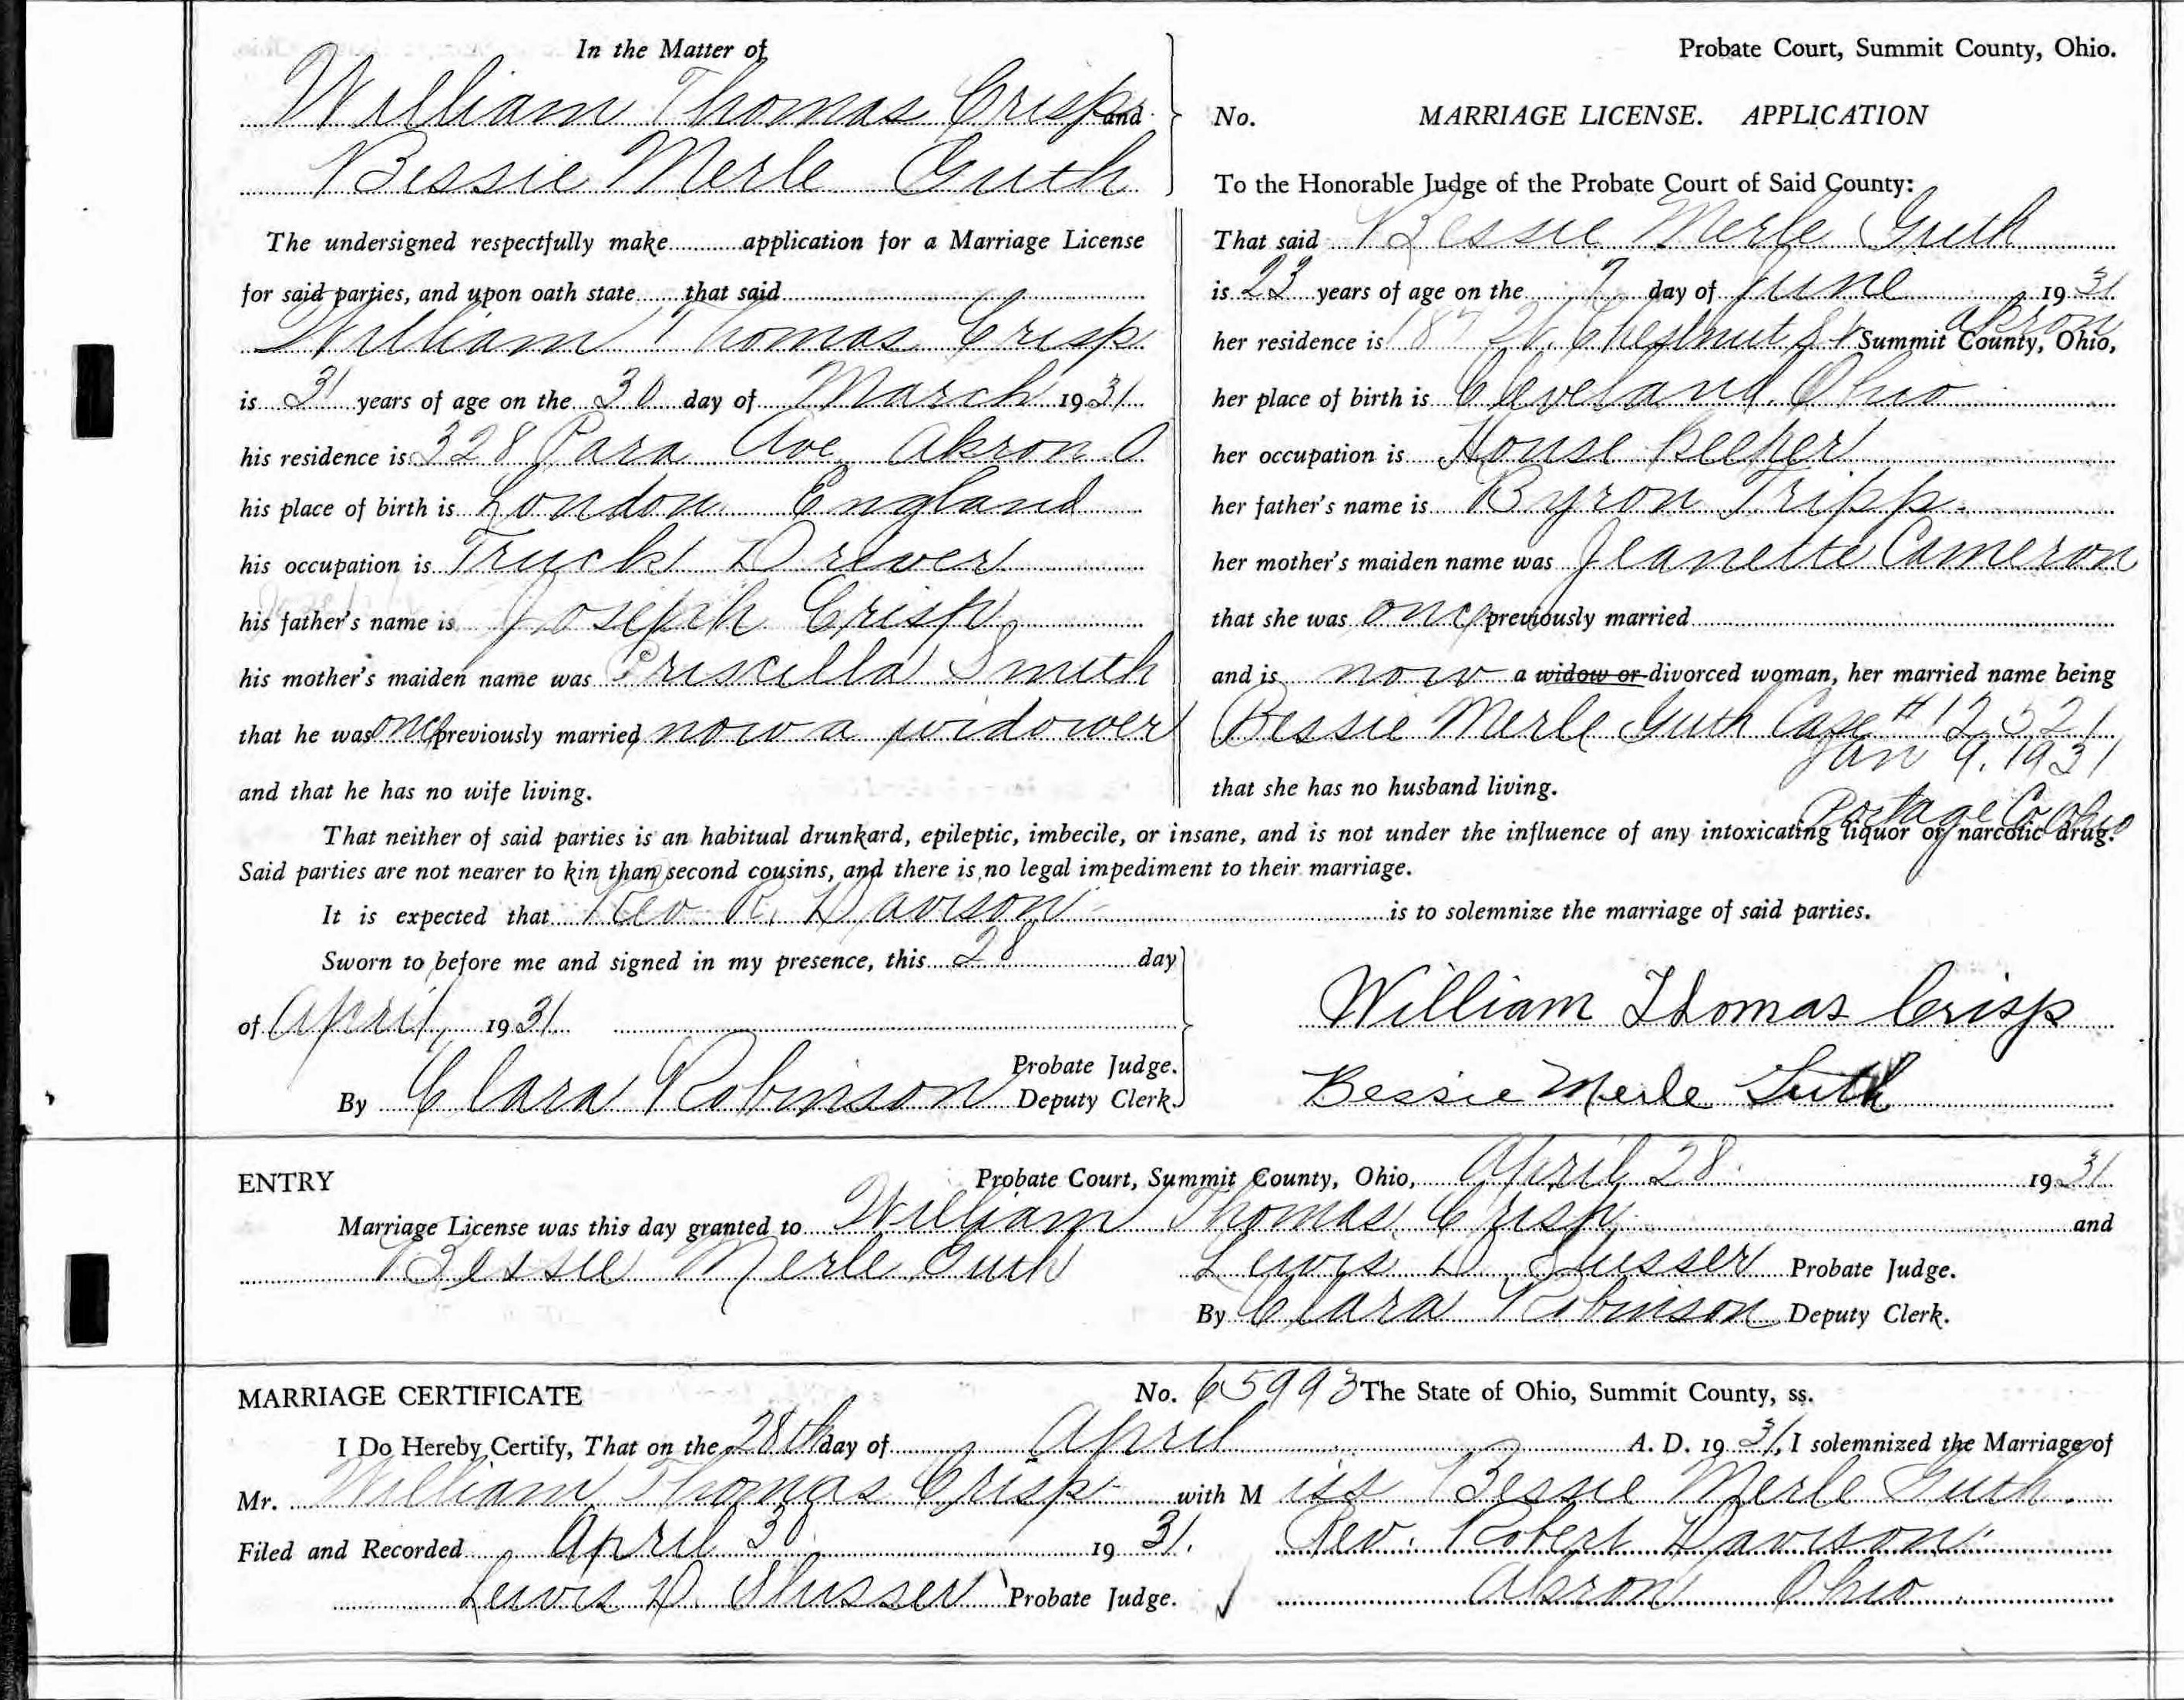 In the Matter of
William Thomas Crisp and
Bessie Merle Guth
The undersigned respectfully make.........application for a Marriage License
for said parties, and upon oath state.......that said
William Thomas Crisp
is 31 years of age on the 30 day of March 1931
his residence is 328 Para Ave Akron O
his place of birth is London England
his occupation is Truck Driver
his father's name is Joseph Crisp
his mother's maiden name was Priscilla Smith
that he was once previously married now a widower
and that he has no wife living.
Probate Court, Summit County, Ohio.
No. MARRIAGE LICENSE. APPLICATION
To the Honorable Judge of the Probate Court of Said County:
That said Bessie Merle Guth
is 23 years of age on the 7 day of June 1931
her residence is 187 W. Chestnut St Akron Summit County, Ohio,
her place of birth is Cleveland, Ohio
her occupation is House Keeper
her father's name is Byron Tripp
her mother's maiden name was Jeanette Cameron
that she was once previously married
and is now a widow or divorced woman, her married name being
Bessie Merle Guth Case #12521
Jan 9, 1931
that she has no husband living.
Portage Co Ohio
That neither of said parties is an habitual drunkard, epileptic, imbecile, or insane, and is not under the influence of any intoxicating liquor or narcotic drug.
Said parties are not nearer to kin than second cousins, and there is no legal impediment to their marriage.
It is expected that Rev R. Davison is to solemnize the marriage of said parties.
Sworn to before me and signed in my presence, this 28 day
of April, 1931
Probate Judge.
By Clara Robinson Deputy Clerk.
William Thomas Crisp
Bessie Merle Guth
ENTRY Probate Court, Summit County, Ohio, April 28 1931
Marriage License was this day granted to William Thomas Crisp and
Bessie Merle Guth Lewis D. Slusser Probate Judge.
By Clara Robinson Deputy Clerk.
MARRIAGE CERTIFICATE No. 65993 The State of Ohio, Summit County, ss.
I Do Hereby Certify, That on the 28th day of April A. D. 1931, I solemnized the Marriage of
Mr. William Thomas Crisp with Miss Bessie Merle Guth.
Filed and Recorded April 30 1931. Rev. Robert Davison
Lewis D. Slusser Probate Judge. Akron Ohio